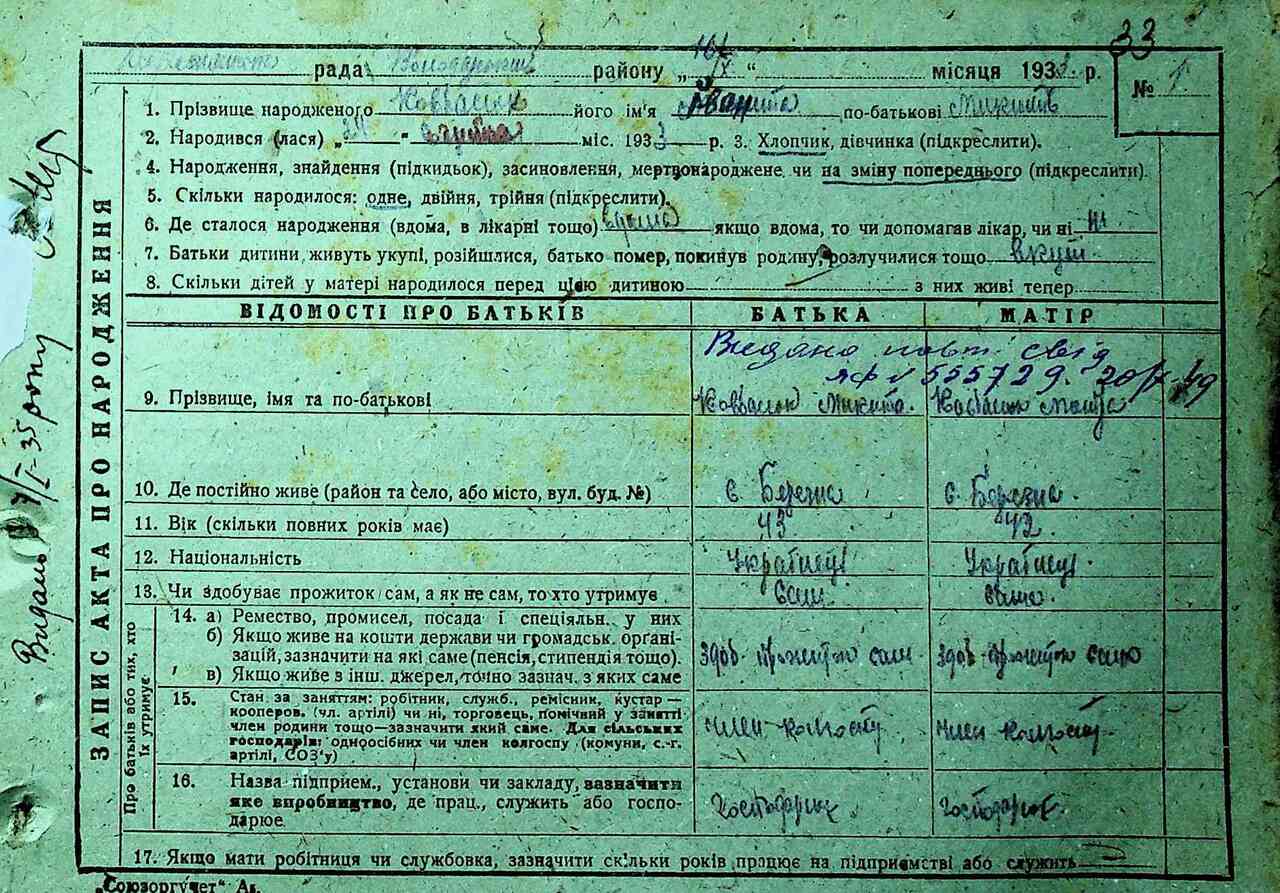 33
рада Володарський району „16/IX“ місяця 1933 р.
№ 1
1. Прізвище народженого Ковбасюк його ім'я по-батькові Микитів
2. Народився (лася) „ “ міс. 1933 р. 3. Хлопчик, дівчинка (підкреслити).
4. Народження, знайдення (підкидьок), засиновлення, мертвонароджене чи на зміну попереднього (підкреслити).
5. Скільки народилося: одне, двійня, трійня (підкреслити).
6. Де сталося народження (вдома, в лікарні тощо) вдома якщо вдома, то чи допомагав лікар, чи ні ні
7. Батьки дитини живуть укупі, розійшлися, батько помер, покинув родину, розлучилися тощо вкупі
8. Скільки дітей у матері народилося перед цією дитиною — з них живі тепер
ЗАПИС АКТА ПРО НАРОДЖЕННЯ
ВІДОМОСТІ ПРО БАТЬКІВ БАТЬКА МАТІР
Видано повт. свід
ЯФ № 555729. 20/ 49
9. Прізвище, імя та по-батькові Ковбасюк Микита. Ковбасюк
10. Де постійно живе (район та село, або місто, вул. буд. №) с. Березна с. Березна.
11. Вік (скільки повних років має) 43 42
12. Національність Українец Українец
13. Чи здобуває прожиток сам, а як не сам, то хто утримує Сам сама.
Про батьків або тих, хто їх утримує
14. а) Ремество, промисел, посада і спеціяльн. у них
б) Якщо живе на кошти держави чи громадськ. орґані-
зацій, зазначити на які саме (пенсія, стипендія тощо). здоб. прожиток сам здоб. прожиток само
в) Якщо живе в інш. джерел, точно зазнач. з яких саме
15. Стан за заняттям: робітник, служб., ремісник, кустар —
кооперов. (чл. артілі) чи ні, торговець, помічний у занятті
член родини тощо—зазначити який саме. Для сільських член колгоспу член колгоспу
господарів: одноосібних чи член колгоспу (комуни, с.-г.
артілі, СОЗ'у)
16. Назва підприєм., установи чи закладу, зазначити
яке виробництво, де прац., служить або госпо- господарює господарює
дарює
17. Якщо мати робітниця чи службовка, зазначити скільки років працює на підприємстві або служить
„Союзоргучет“
Видано 9/I-35 року